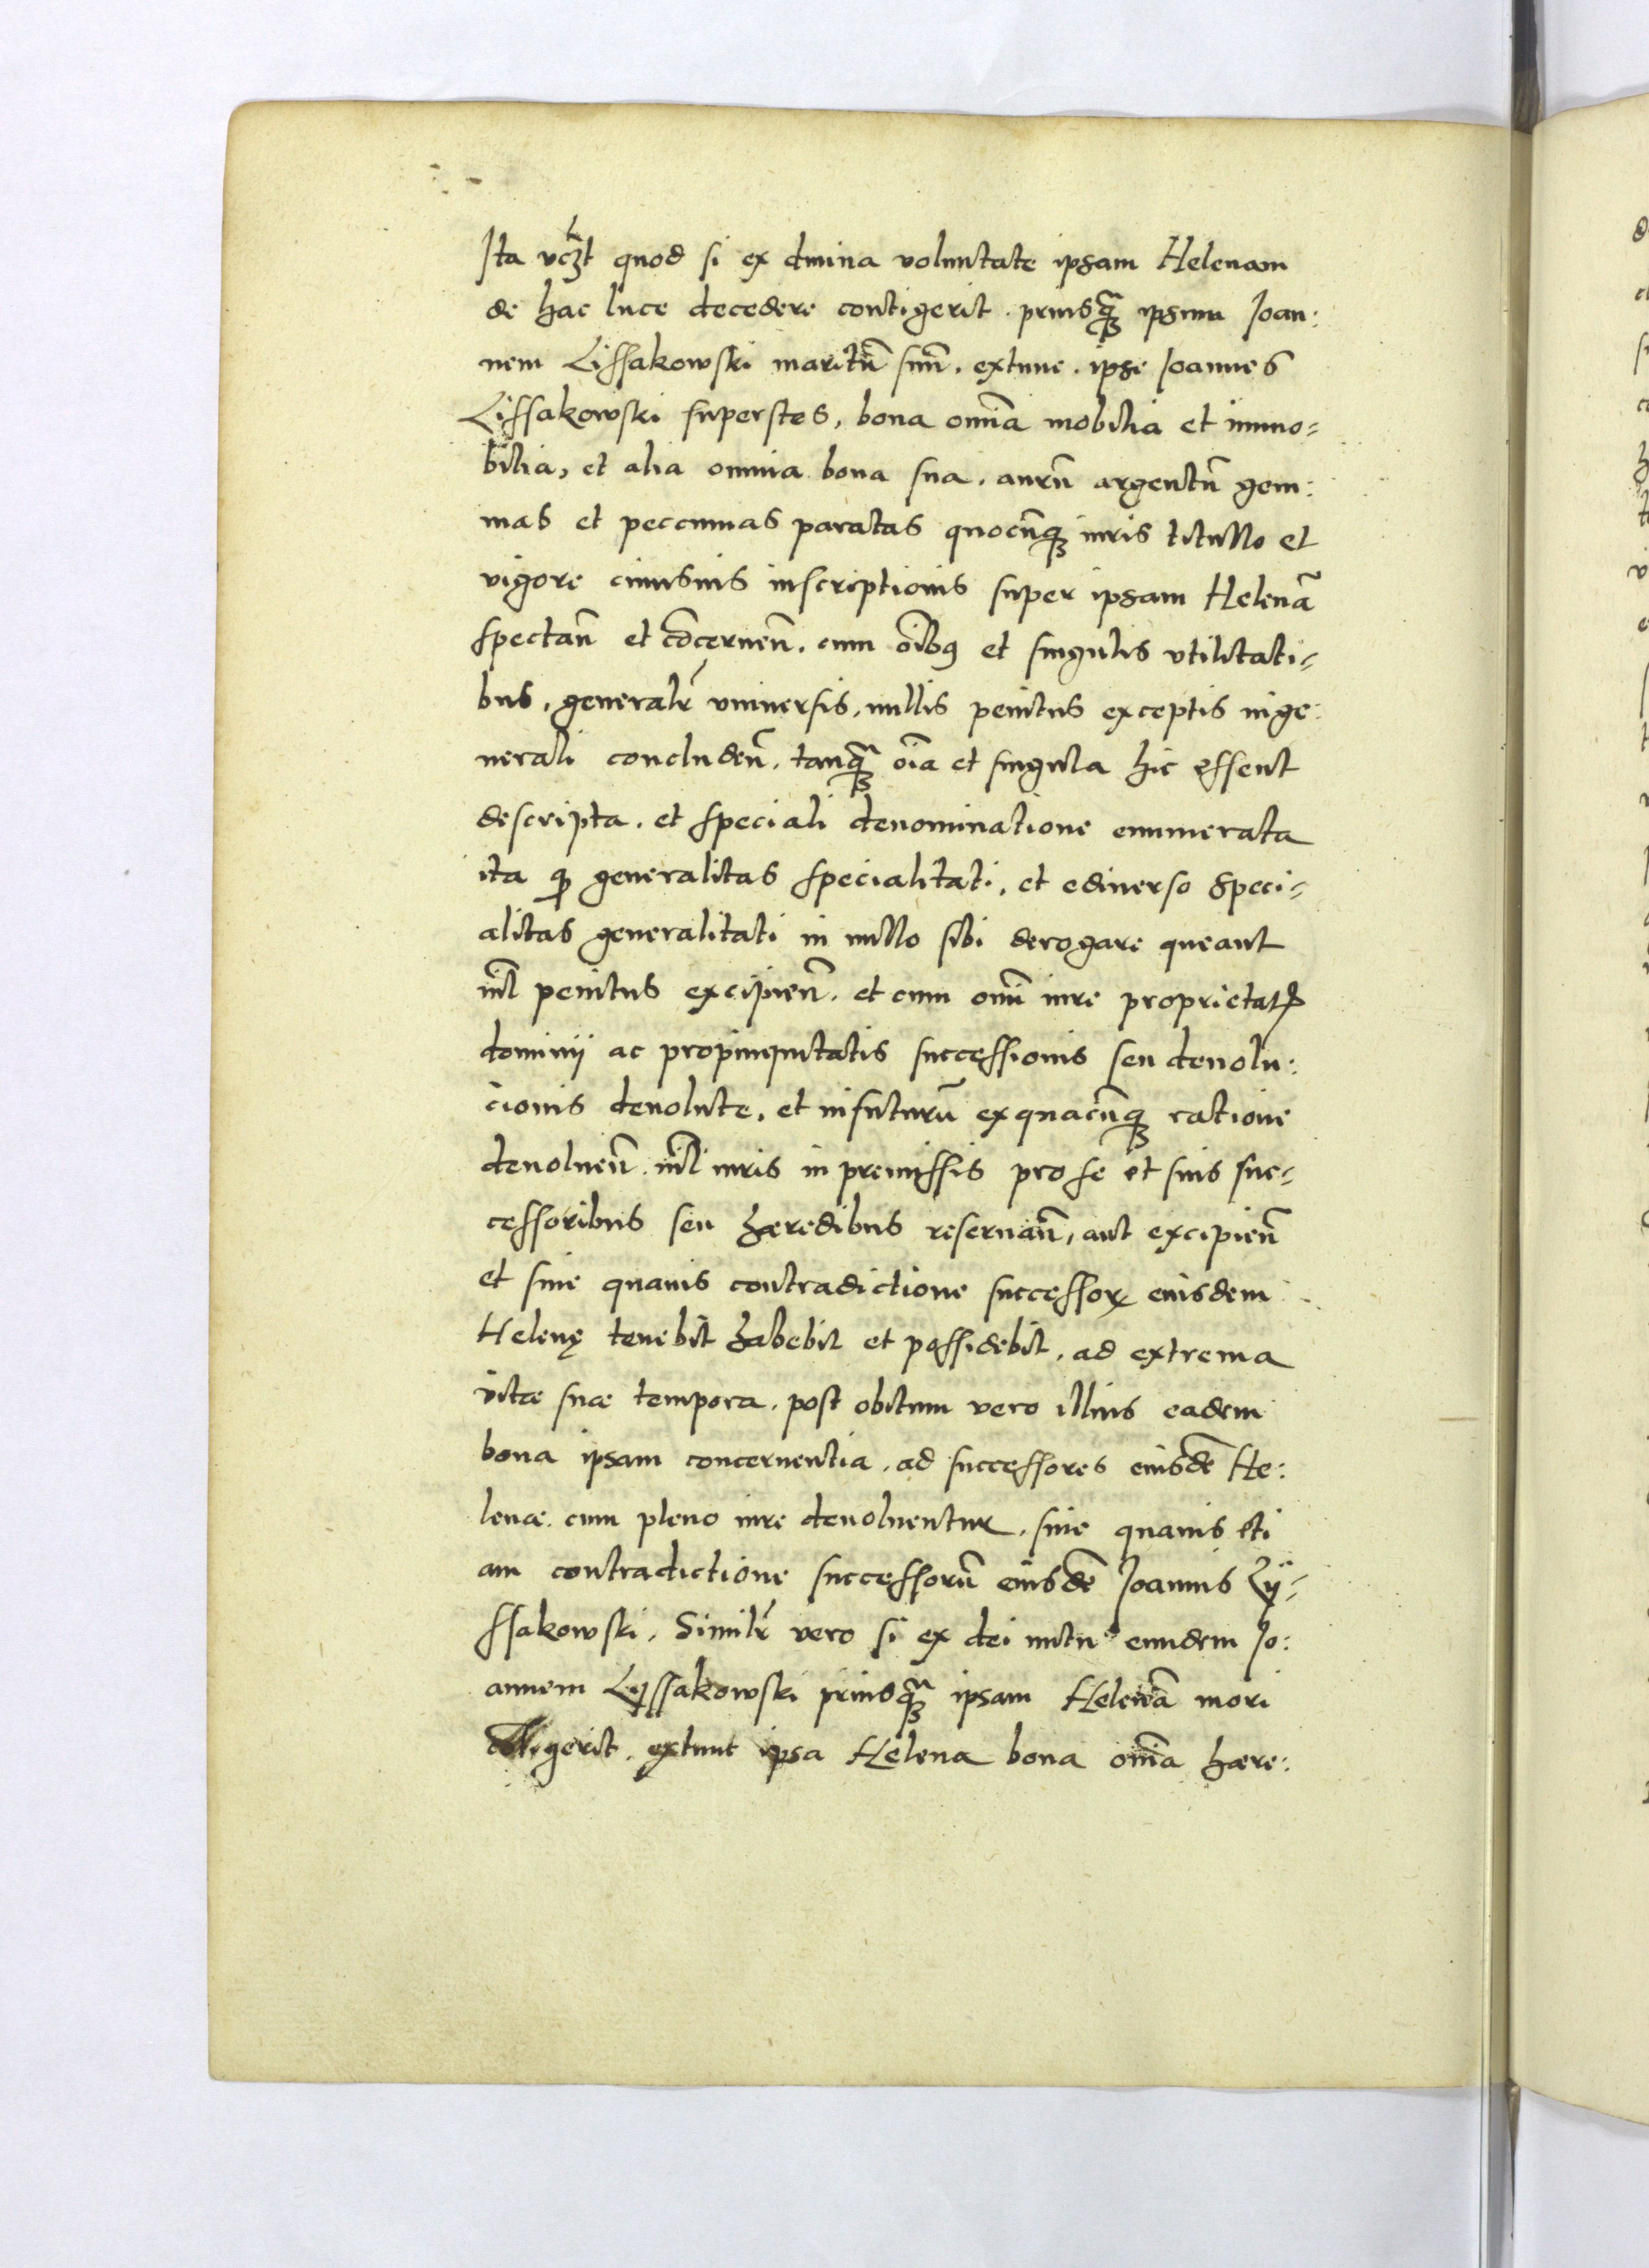 Ita vcꝫt quod si ex diuina voluntate ipsam Helenam
de hac luce decedere contigerit. priusꝙ̃ ipsum Joan:
nem Lissakowski maritũ suũ. extunc. ipse Joannes
Lissakowski superstes, bona omĩa mobilia et immo=
bilia, et alia omnia bona sua. aurũ argentũ gem:
mas et peccunias paratas quocũqꝫ iuris titullo et
vigore cuiusuis inscriptionis super ipsam Helenã
spectañ et cõcerneñ. cum oĩbꝯ et singulis vtilitati=
bus, generalr̃ vniuersis, nullis penitus exceptis in ge:
nerali concludeñ. tanqꝫ̃ oĩa et singula hic essent
descripta. et speciali denominatione enumerata
ita ꝙ generalitas specialitati, et ediuerso speci=
alitas generalitati in nullo sibi derogare queant
nil̃ penitus excipieñ. et cum om̃i iure proprietatꝭ
dominij ac propinquitatis successionis seu deuolu:
cionis deuolute. et in futurũ ex quacũqꝫ ratione
deuolueñ. nil̃ iuris in premissis pro se et suis suc=
cessoribus seu hæredibus reseruañ, aut excipieñ
et sine quauis contradictione successoꝝ eiusdem
Helenę tenebit habebit et possidebit, ad extrema
vitæ suæ tempora. post obitum vero illius eadem
bona ipsam concernentia, ad successores eiusdẽ He:
lenæ cum pleno iure deuoluentur, sine quauis eti
am contradictione successorũ eiusdẽ Joannis Lÿ=
ssakowski. Similr̃ vero si ex dei nutu eundem Jo:
annem Lyssakowski priusqꝫ̃ ipsam Helenã mori
cõtigerit. extunc ipsa Helena bona omĩa hære: